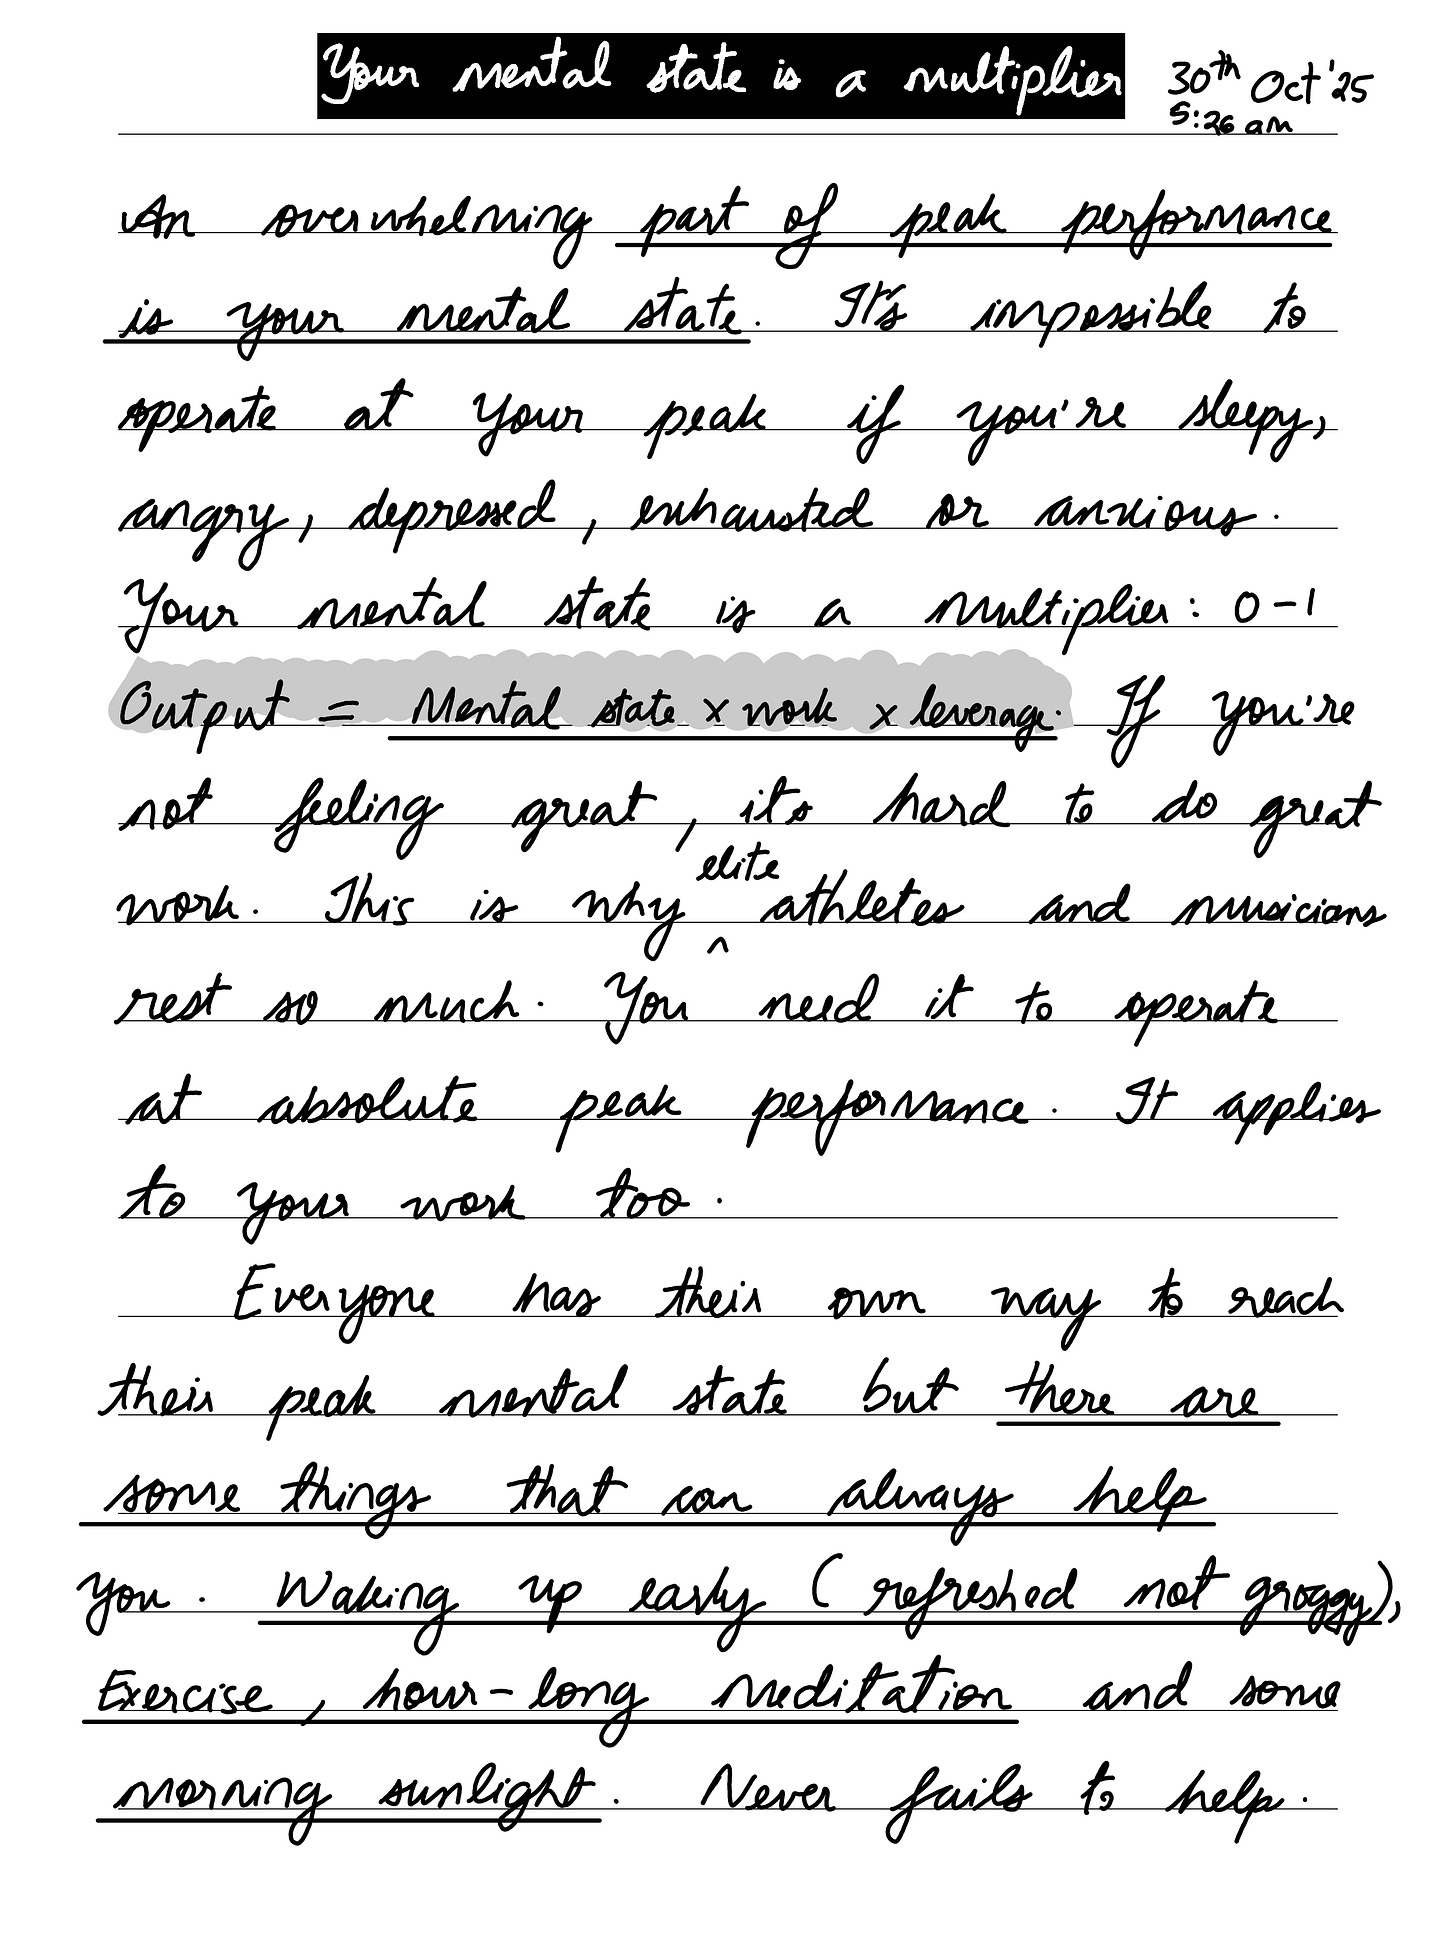 Your mental state is a multiplier
30th Oct '25
5:26 am
An overwhelming part of peak performance
is your mental state. It's impossible to
operate at your peak if you're sleepy,
angry, depressed, exhausted or anxious.
Your mental state is a multiplier: 0-1
Output = Mental state x work x leverage. If you're
not feeling great, it's hard to do great
work. This is why ^ elite athletes and musicians
rest so much. You need it to operate
at absolute peak performance. It applies
to your work too.
Everyone has their own way to reach
their peak mental state but there are
some things that can always help
you. Waking up early (refreshed not groggy),
Exercise, hour-long meditation and some
morning sunlight. Never fails to help.